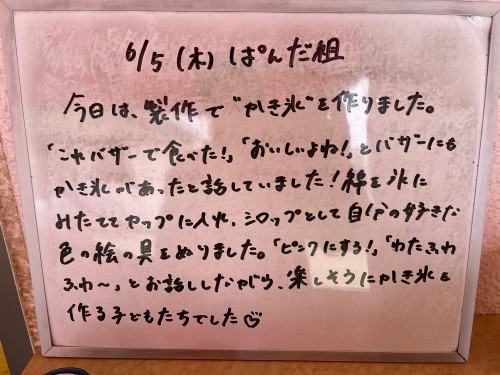 6/5 (木) ぱんだ組
今日は、製作で"かき氷"を作りました。
「これバザーで食べた!」「おいしいよね!」とバザーにも
かき氷があったと話していました!綿を氷に
みたててカップに入れ、シロップとして自分の好きだ
色の絵の具をぬりました。「ピンクにする!」「わたふわ
ふわ〜」とお話ししながら、楽しそうにかき氷を
作る子どもたちでした♡